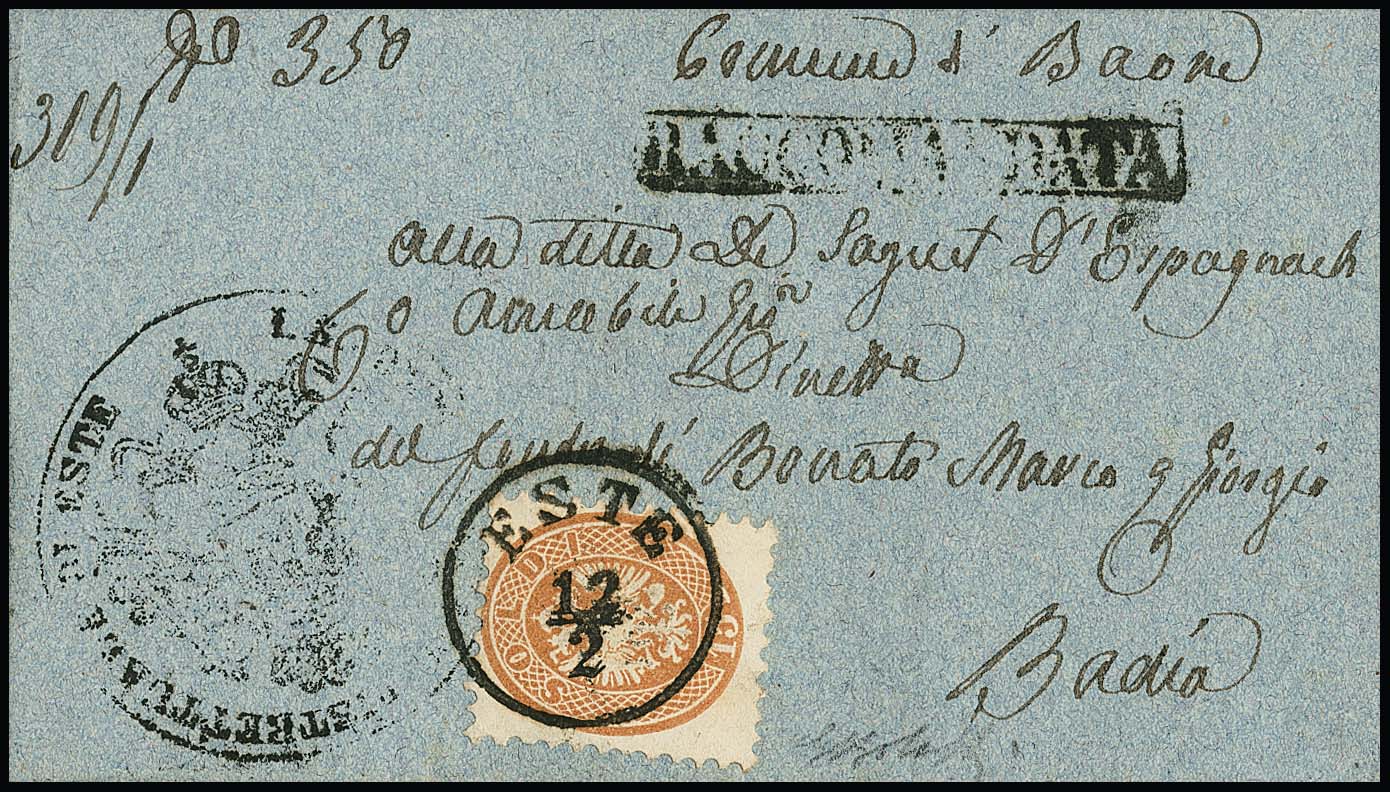 No 350
319/1
Comune d' Baone
RACCOMANDATA
alla ditta De Saguet D'Espagnach
o Amicabile Gio
Dinetta
del fondo di Bonato Marco q Giorgio
Badia
ESTE
12/2
SOLDI 15
LA
ESTE